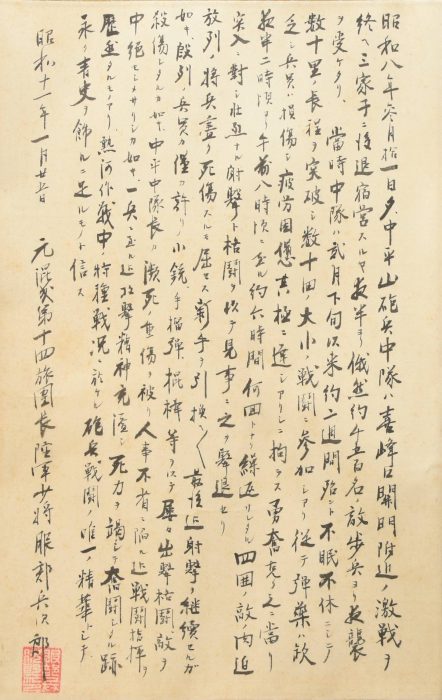 昭和八年参月拾一日夕、中平山砲兵中隊ハ喜峰口関門附近ノ激戦ヲ
終ヘ三家子ニ後退宿営スルヤ夜半ヨリ俄然約千五百名敵歩兵ヨリ夜襲
ヲ受ケタリ 当時中隊ハ弐月下旬以来約二週間殆ント不眠不休ニシテ
数十里ノ長程ヲ突破シ数十回ノ大小ノ戦闘ニ参加シアリ従テ弾薬ハ欠
乏シ兵員ハ損傷シ疲労困憊其極ニ達シアリシニ拘ラス勇奮克ク之ニ当リ
夜半二時頃ヨリ午前八時頃ニ至ル約六時間何回トナク繰返サレタル四囲ノ敵ノ肉迫
突入ニ対シ壮烈ナル射撃ト格闘ヲ以テ見事ニ之ヲ撃退セリ
放列ノ将兵盡ク死傷スルモ屈セス新手ヲ引換ヘ〱最後迄射撃ヲ継続セルカ
如キ、段列ノ兵員カ僅カ許リノ小銃、手榴弾、棍棒等ヲ以テ屡々出撃格闘敵ヲ
殺傷シタルカ如キ、中平中隊長カ瀕死ノ重傷ヲ被リ人事不省ニ陥ル迄戦闘指揮ヲ
中絶セシメサリシカ如キ、一兵ニ至ル迄攻撃精神充溢シ死力ヲ竭シテ奮闘シタル跡
歴然タルモノアリ、熱河作戦中ノ特種戦況ニ於ケル砲兵戦闘ノ唯一ノ精華トシテ
永ク青史ヲ飾ルニ足ルモノト信ス
昭和十一年一月廿五日
元混成第十四旅團長陸軍少将服部兵次郎